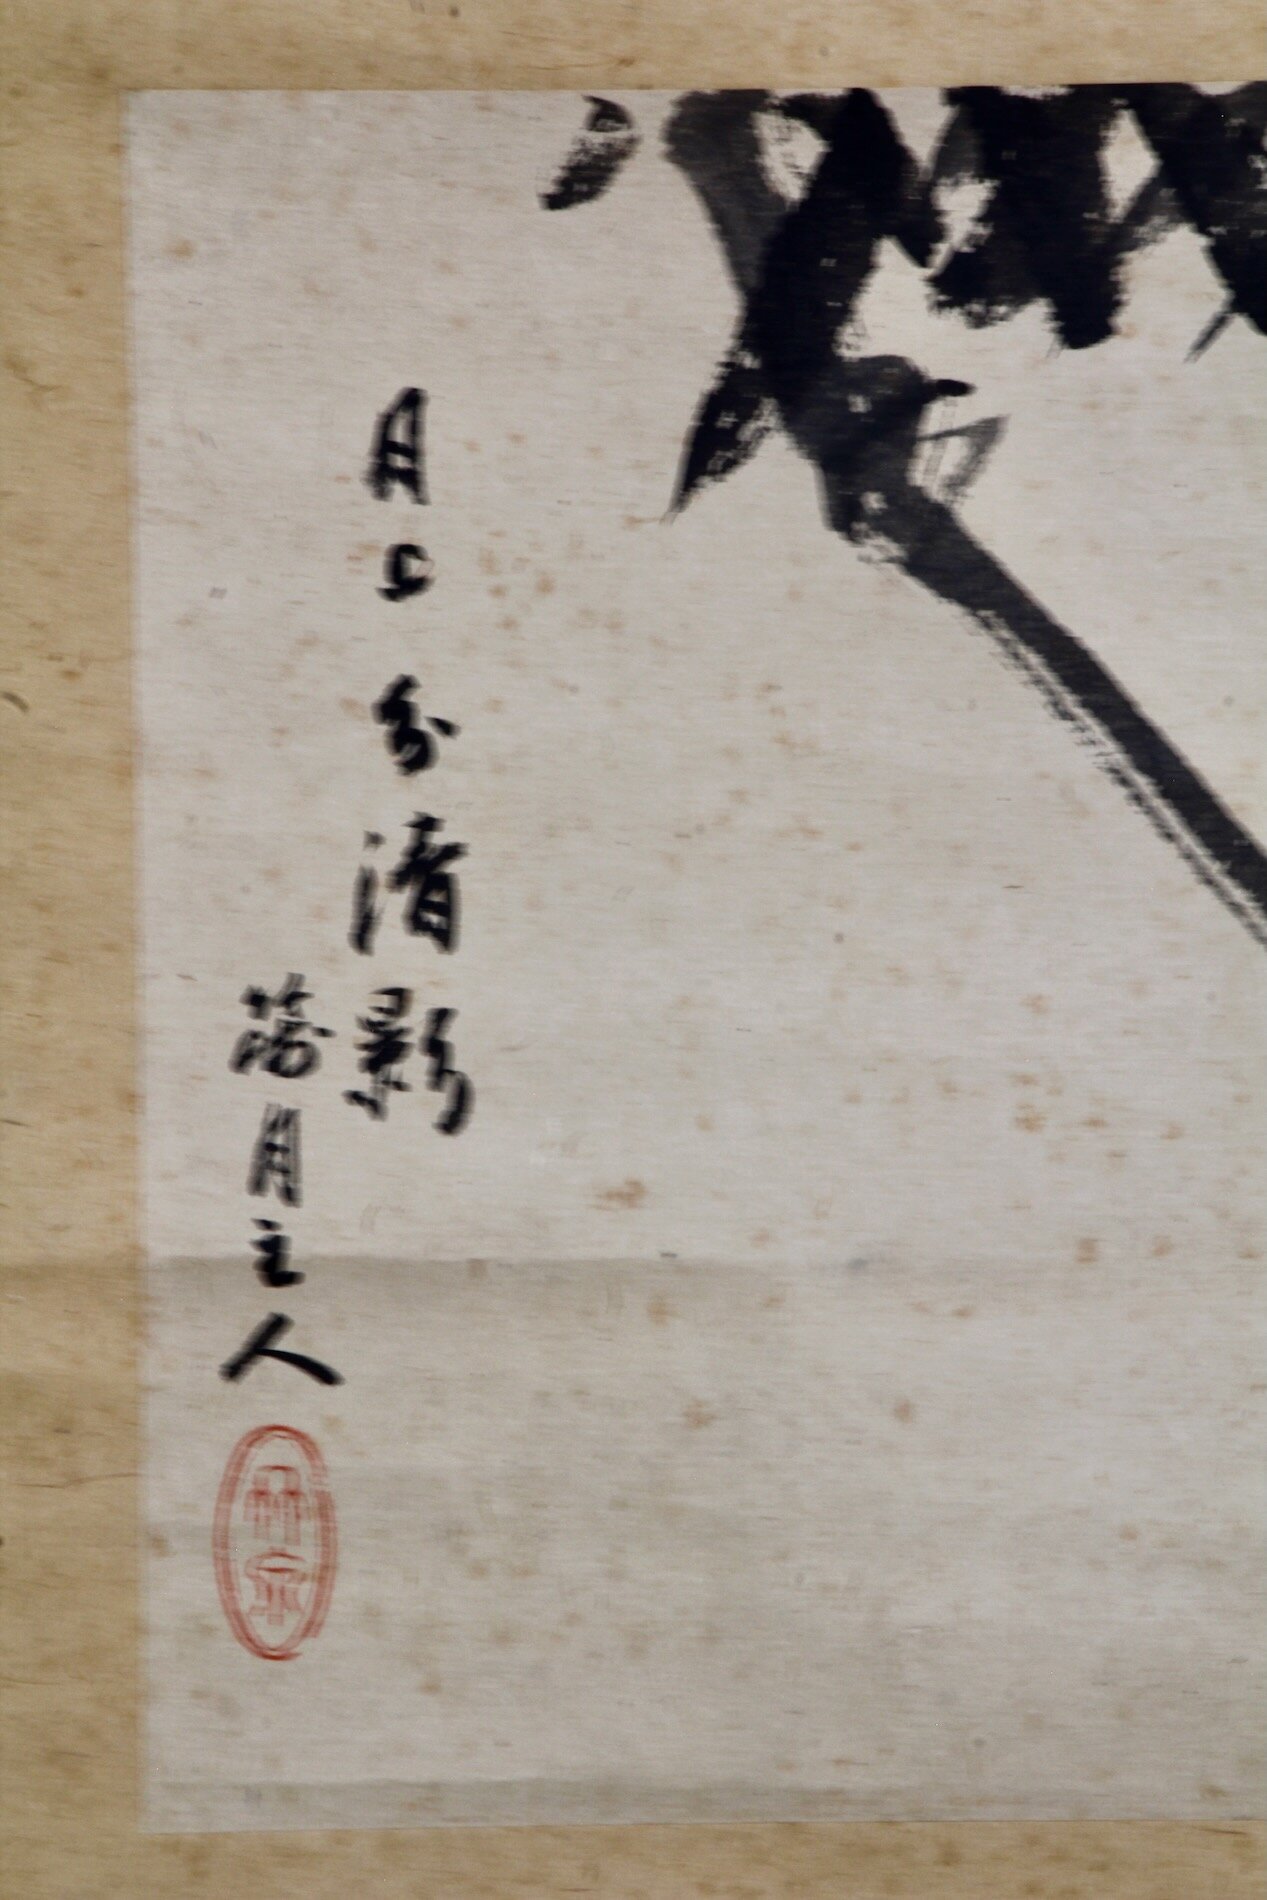 月上分清影
蕩月主人